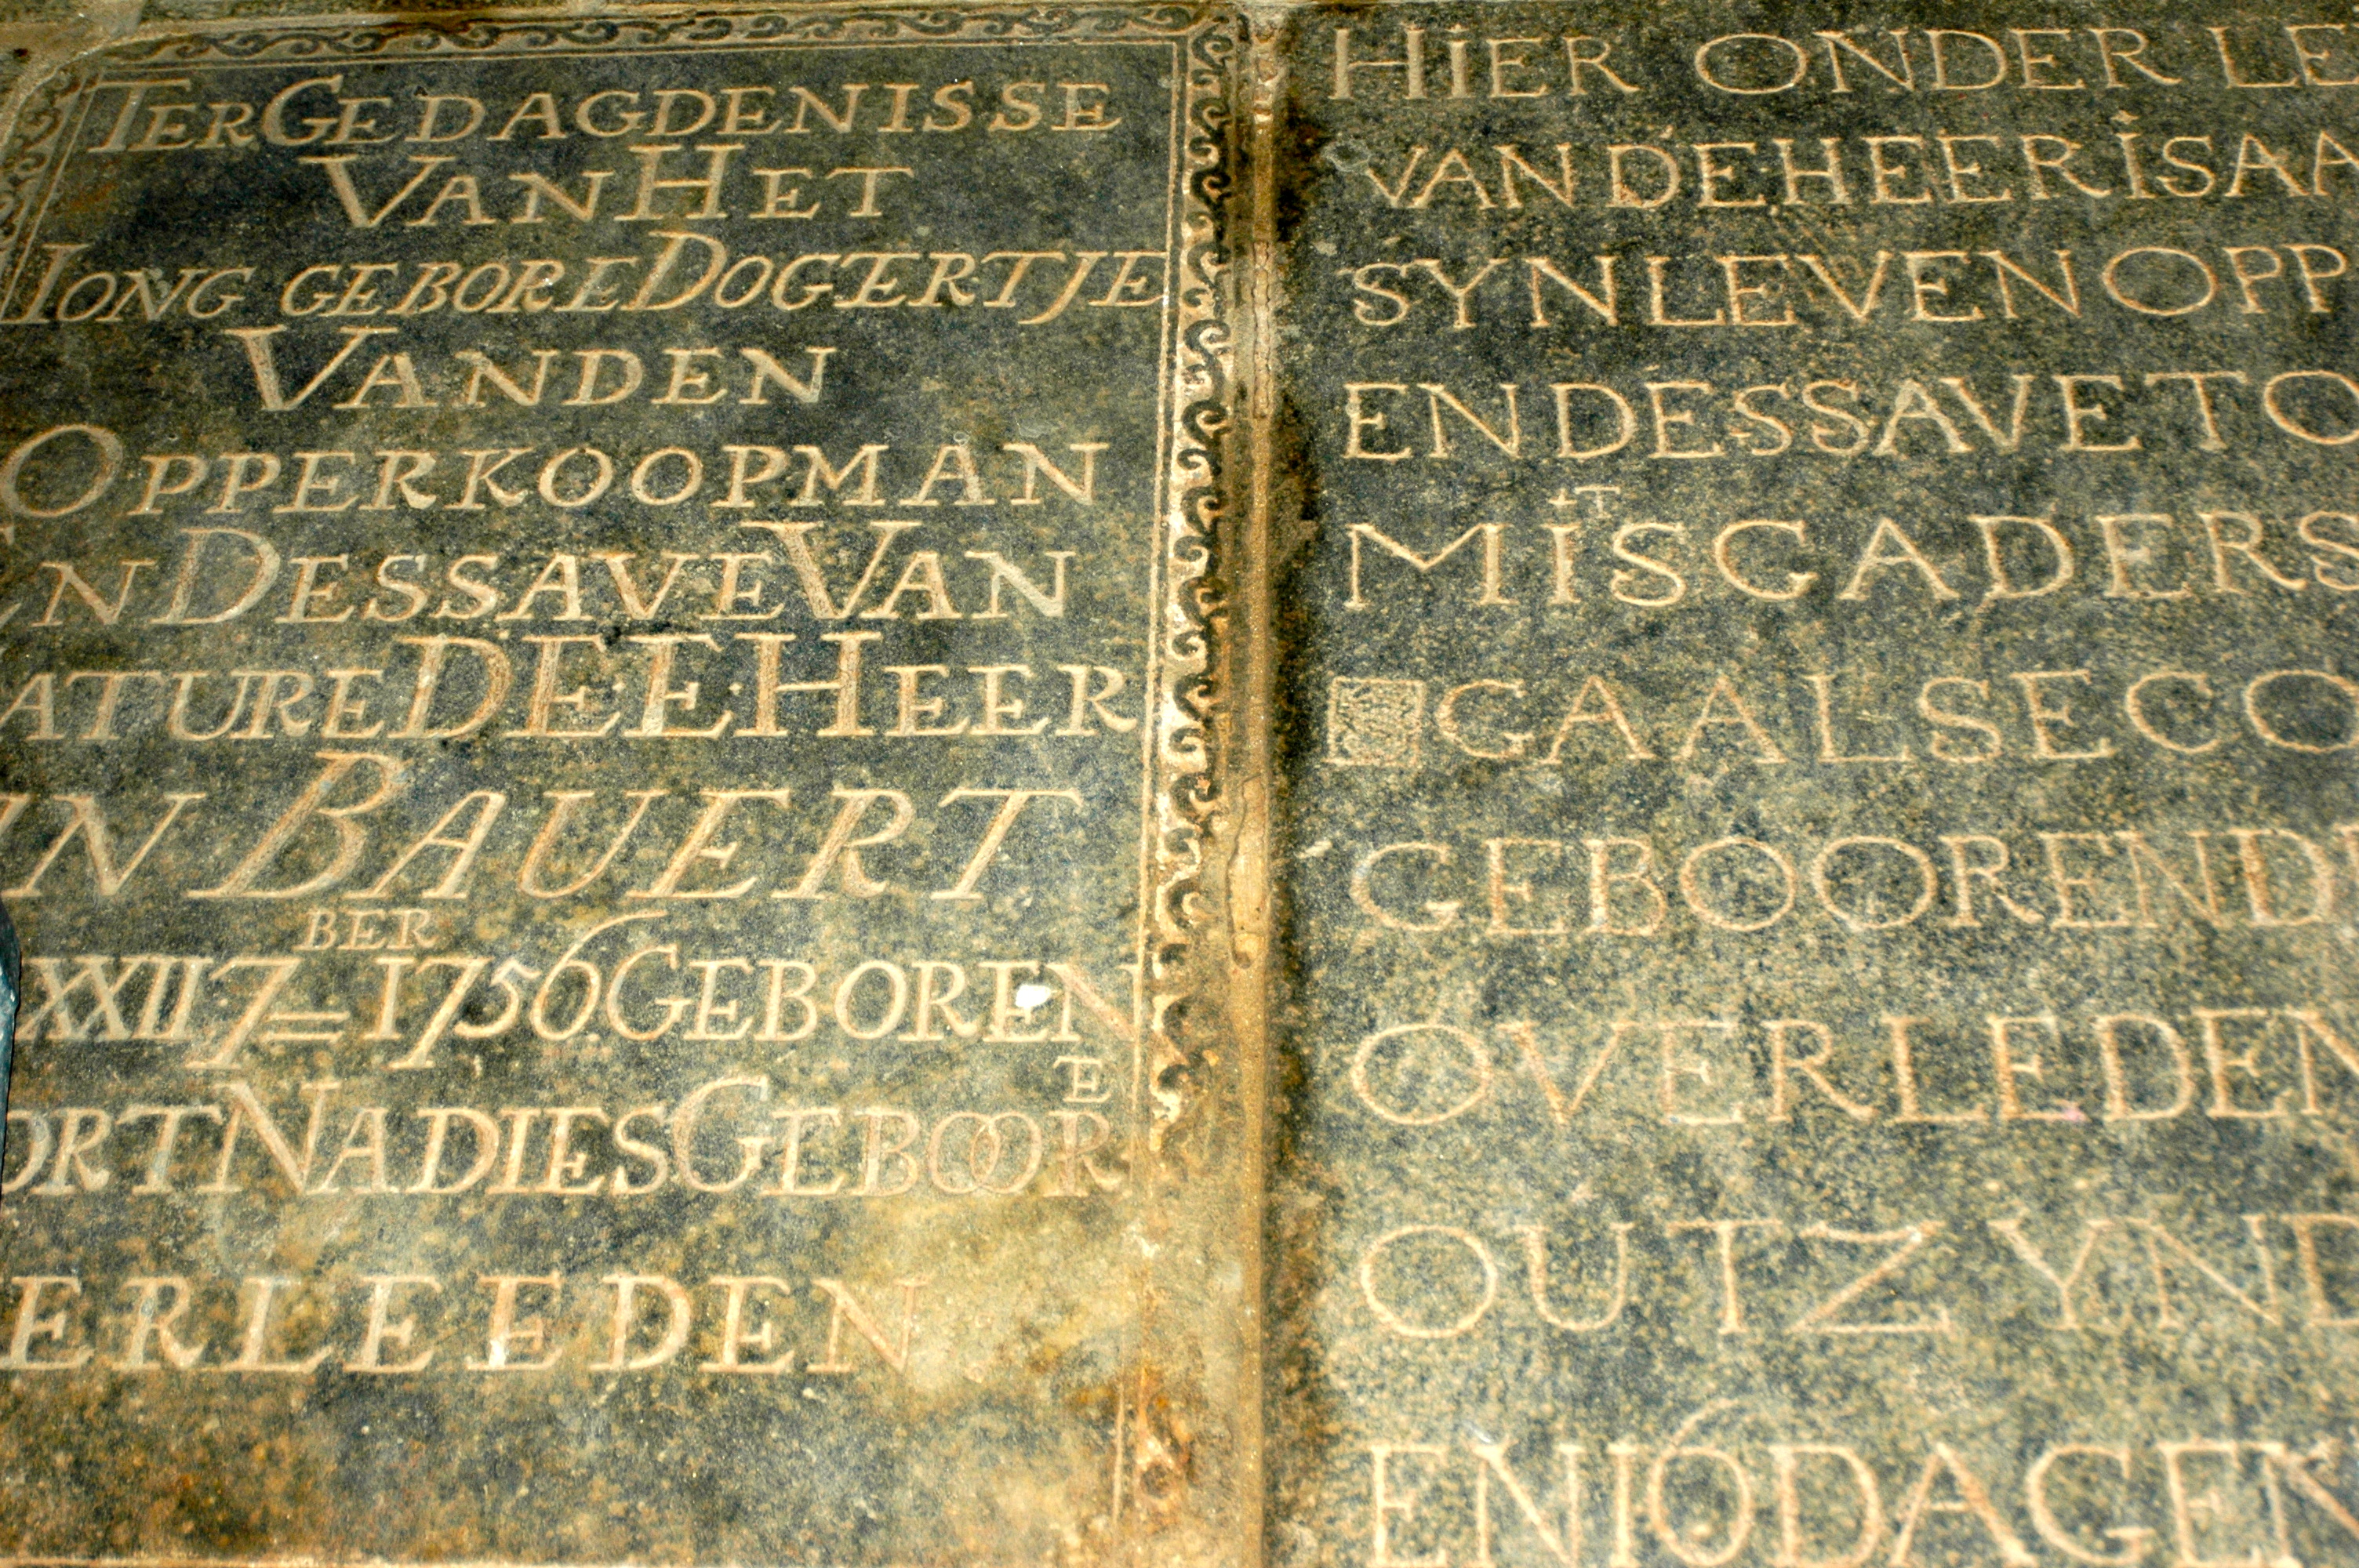 TER GEDAGDENISSE
VAN HET
IONG GEBORE DOGERTJE
VAN DEN
OPPERKOOPMAN
EN DESSAVE VAN
ATURE DE E: E: HEER
IN BAUERT
XXII 7BER = 1756 GEBOREN
ORT NA DIES GEBOORE
ERLEEDEN
HIER ONDER LE
VAN DE HEER ISAA
SYN LEVEN OPP
EN DESSAVE TO
MITSGADERS
GAALSE CO
GEBOOREN D
OVERLEDEN
OUT ZYND
EN 16 DAGEN